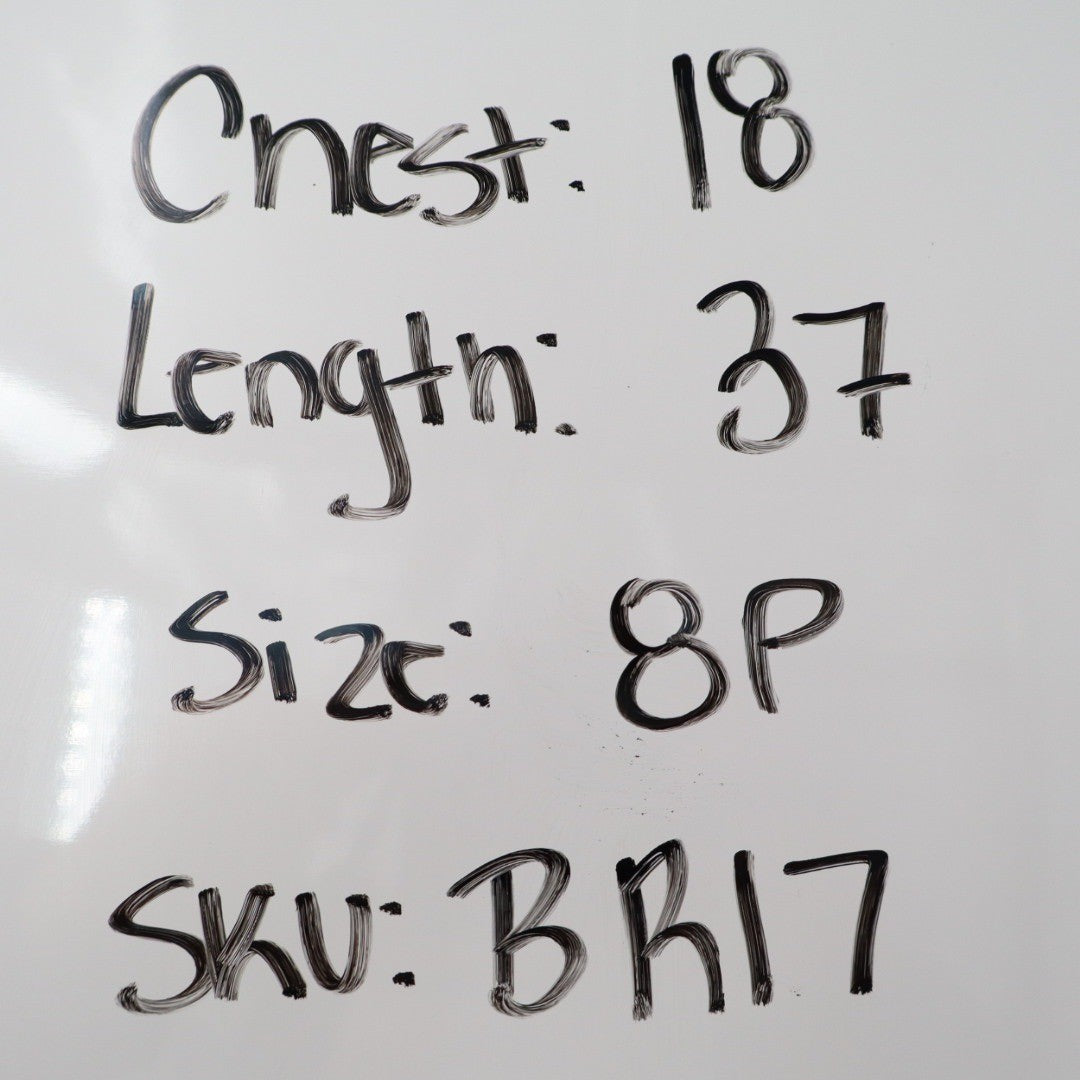 Chest: 18
Length: 37
Size: 8P
SKU: BR17